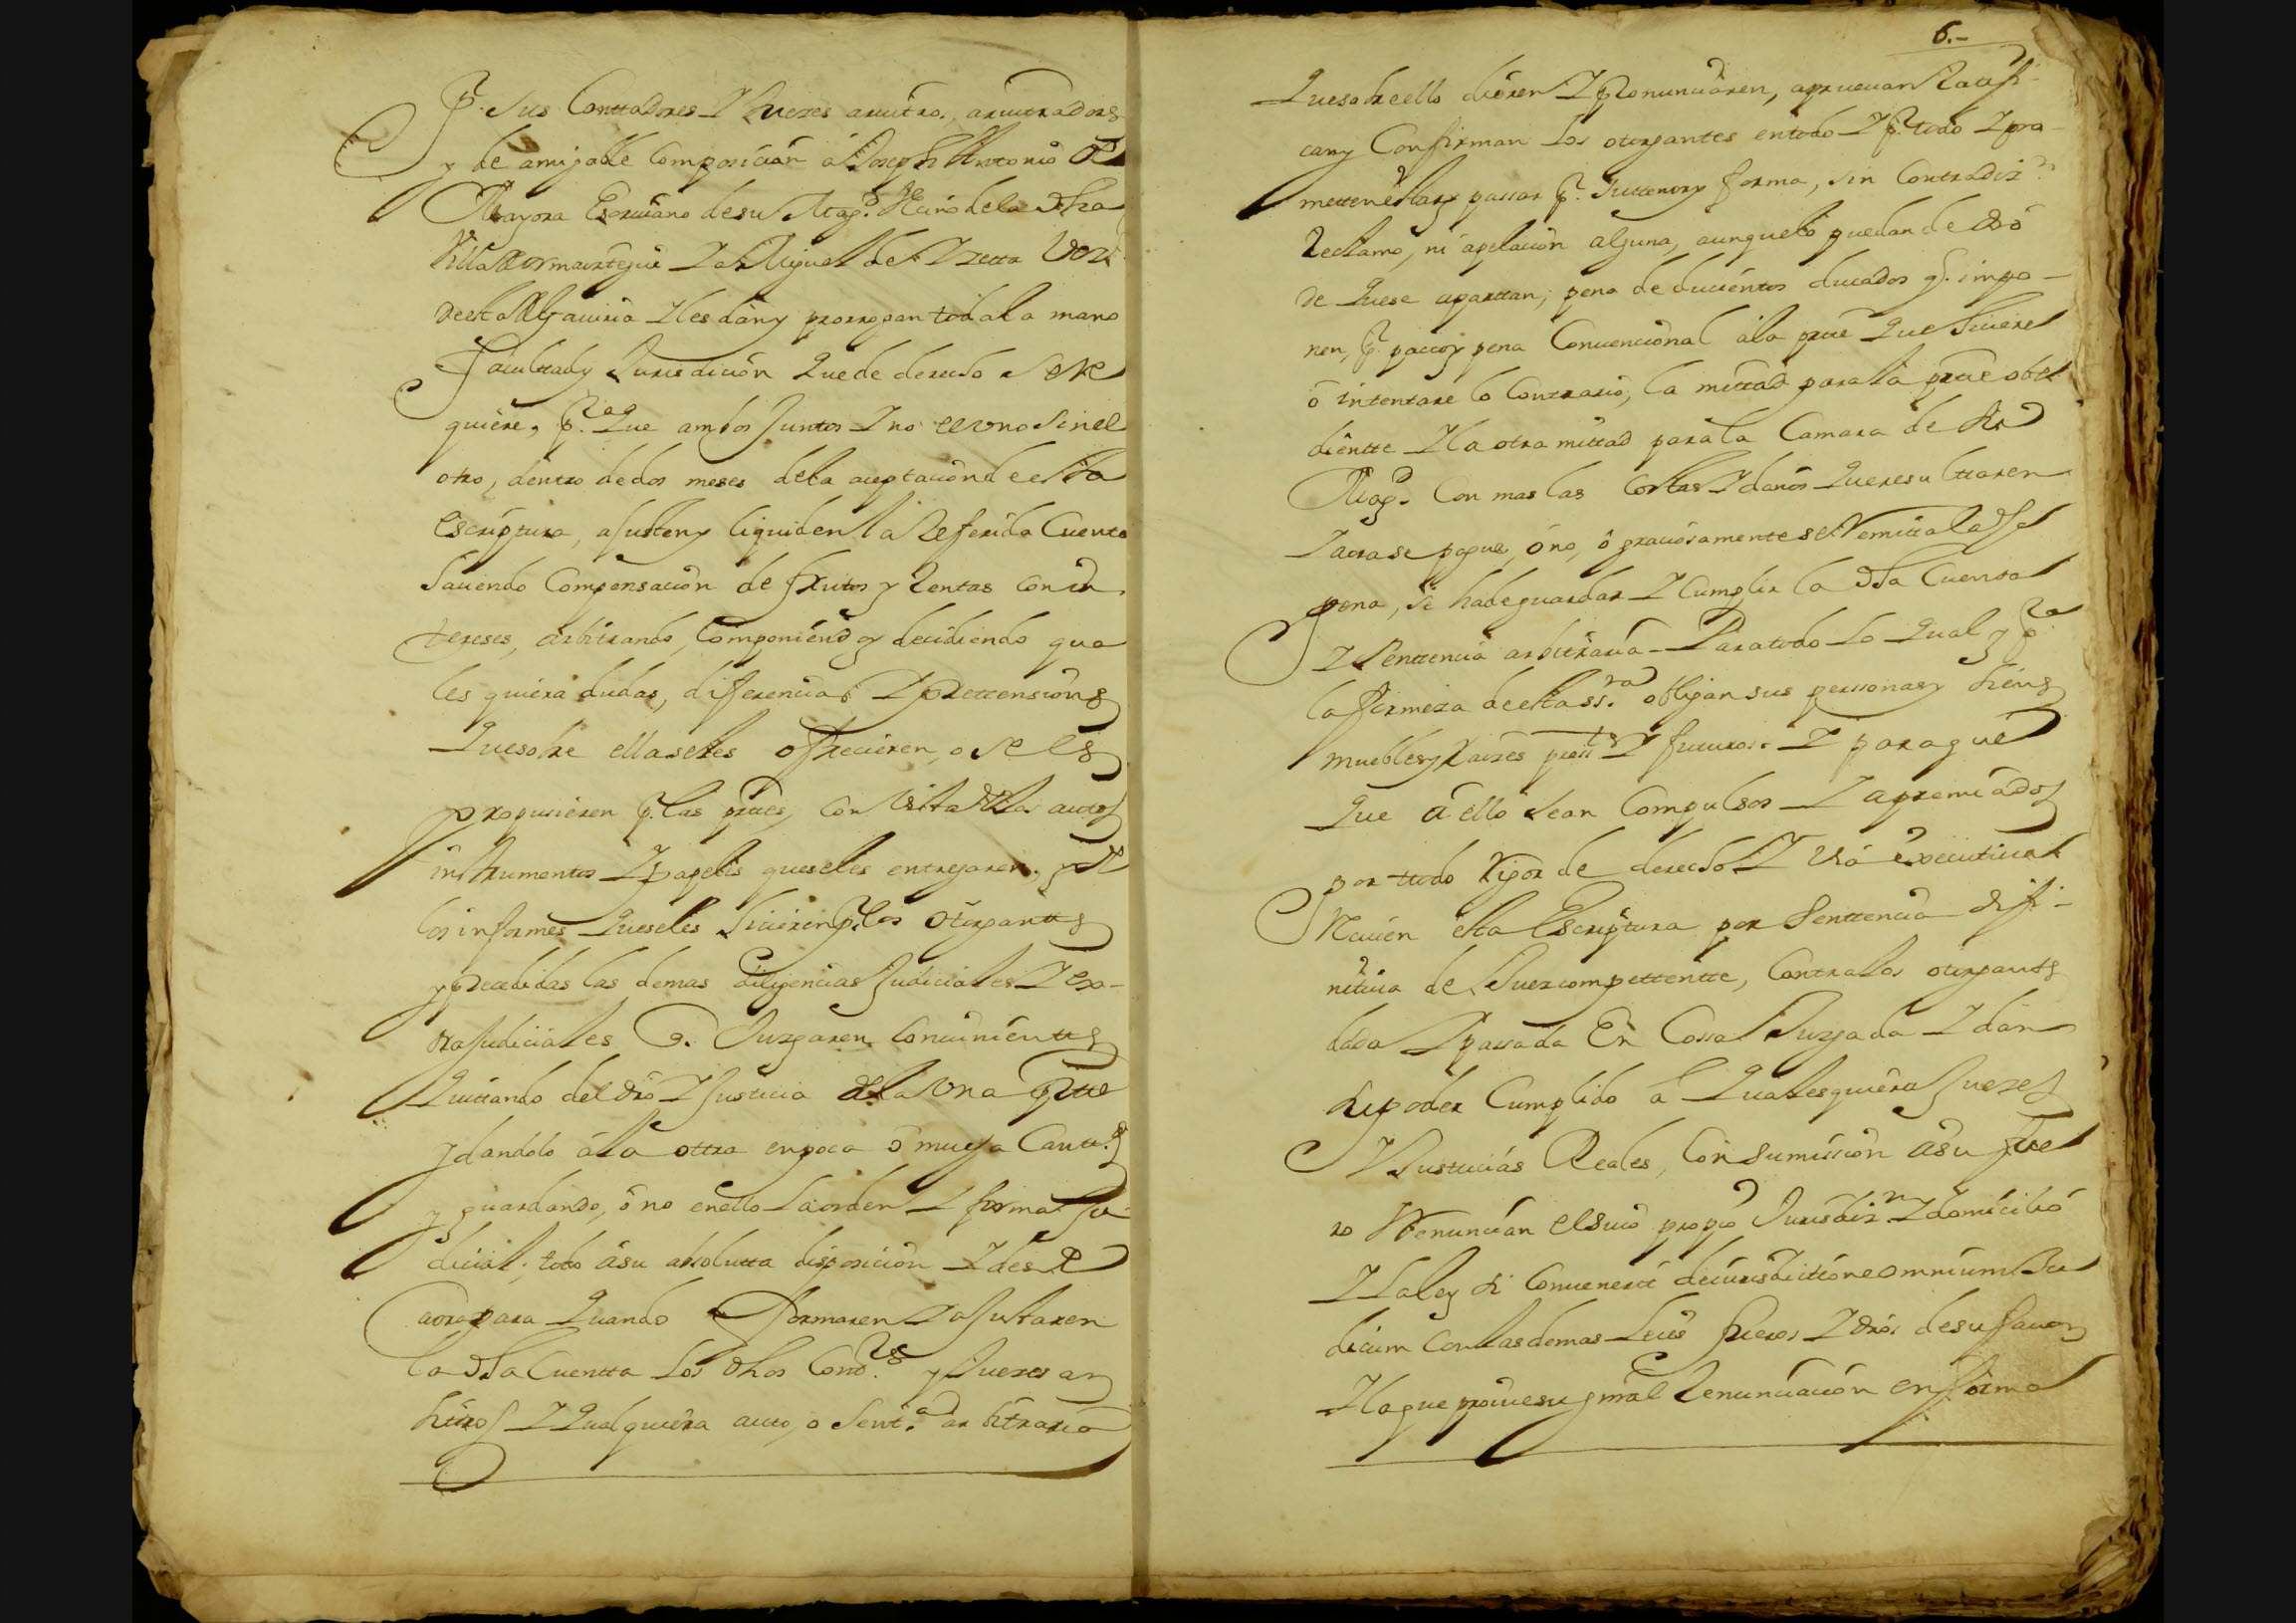 Pr. sus Conttadores I Juezes aruitro., aruitradores
y de amigable Composicián á Joseph Antonio de
Mayora Escriuano de su Magd. Vecinó de la dha
Villa Ormaiztegui I a Miguel de Izetta Vezi
de esta Algauiria I les dán y prorrogan toda la mano
Facultad y Jurisdicion que de derecho se re
quiere, pa. que ambos juntos I no el vno sin el
otro, dentro de dos meses dela aceptaciónde esta
Escriptura, ajusten y liquiden la Referida Cuenta
hauiendo Compensación de frutos y Rentas con in
tereses, arbitrando, Componiendo y decidiendo qua
les quiera dudas, diferencias I prettensiones
que sobre ella se les ofrecieren, o se les
propusieren pr. las prtes, con vista de los autos
instrumentos I papeles que se les entregaren, y de
los informes que se les hicieren pr. los otorgantes
y precedidas las demas diligencias judiciales I ex-
trajudiciales q. Juzgaren conuinienttes
Quittando del dró I Justicia de la vna prtte
y dandolo á la ottra en poca ó mucha Cantt.d
y guardando, ó no en ello la orden I forma Ju-
dicial; todo á su absolutta disposición I desde
aora para quando formaren I ajustaren
la dha Cuentta los dhos Contt.res y Juezes ar
bitros I qualquiera auto, o Sentt.a arbitraria
6.-
Que sobre ello dieren I pronunciaren, aprueuan Ratifi-
can y Confirman los otorgantes en todo I pr. todo I pro-
metten estar y passar pr. su ttenor y forma, sin Contradiz.n
Reclamo, ni apelación alguna, aunque lo puedan de dró
de que se aparttan; pena de ducientos ducados q. impo-
nen, pr. pacto y pena Conuencional á la prte que hiciere
ó intentare lo Contrario, la mittad para la prte obe
diéntte I la otra mittad para la Camara de su
Magd. Con mas las Costas I daños que resulttaren
I aora se pague, ó no, ó graciosamente se Remitta la dha
pena, se ha de guardar I Cumplir la dha Cuenta
I Senttencia arbitraria - Para todo lo qual y pa.
la firmeza de esta ss.ra obligan sus personas y bienes
muebles y Raizes press.tes I futuros. I para que
que á ello sean Compulsos I apremiados
por ttodo Rigor de derecho I vía executiua
Reciuén esta Escriptura por Senttencia difi-
nitiua de Juez compettentte, Contra los otorgantes
dada I passada En Cossa Juzgada I dán
su poder Cumplido a Qualesquiera Juezes
I Justicias Reales, Con sumissión a su fue
ro I Renuncian el suio propio Jurisdiz.n I domicilio
I la ley si Conuenerit de iurisdictione omnium Ju
dicum Con las demas leies fueros I drós de su fauor
I la que prouiesu gnral Renunciación en forma